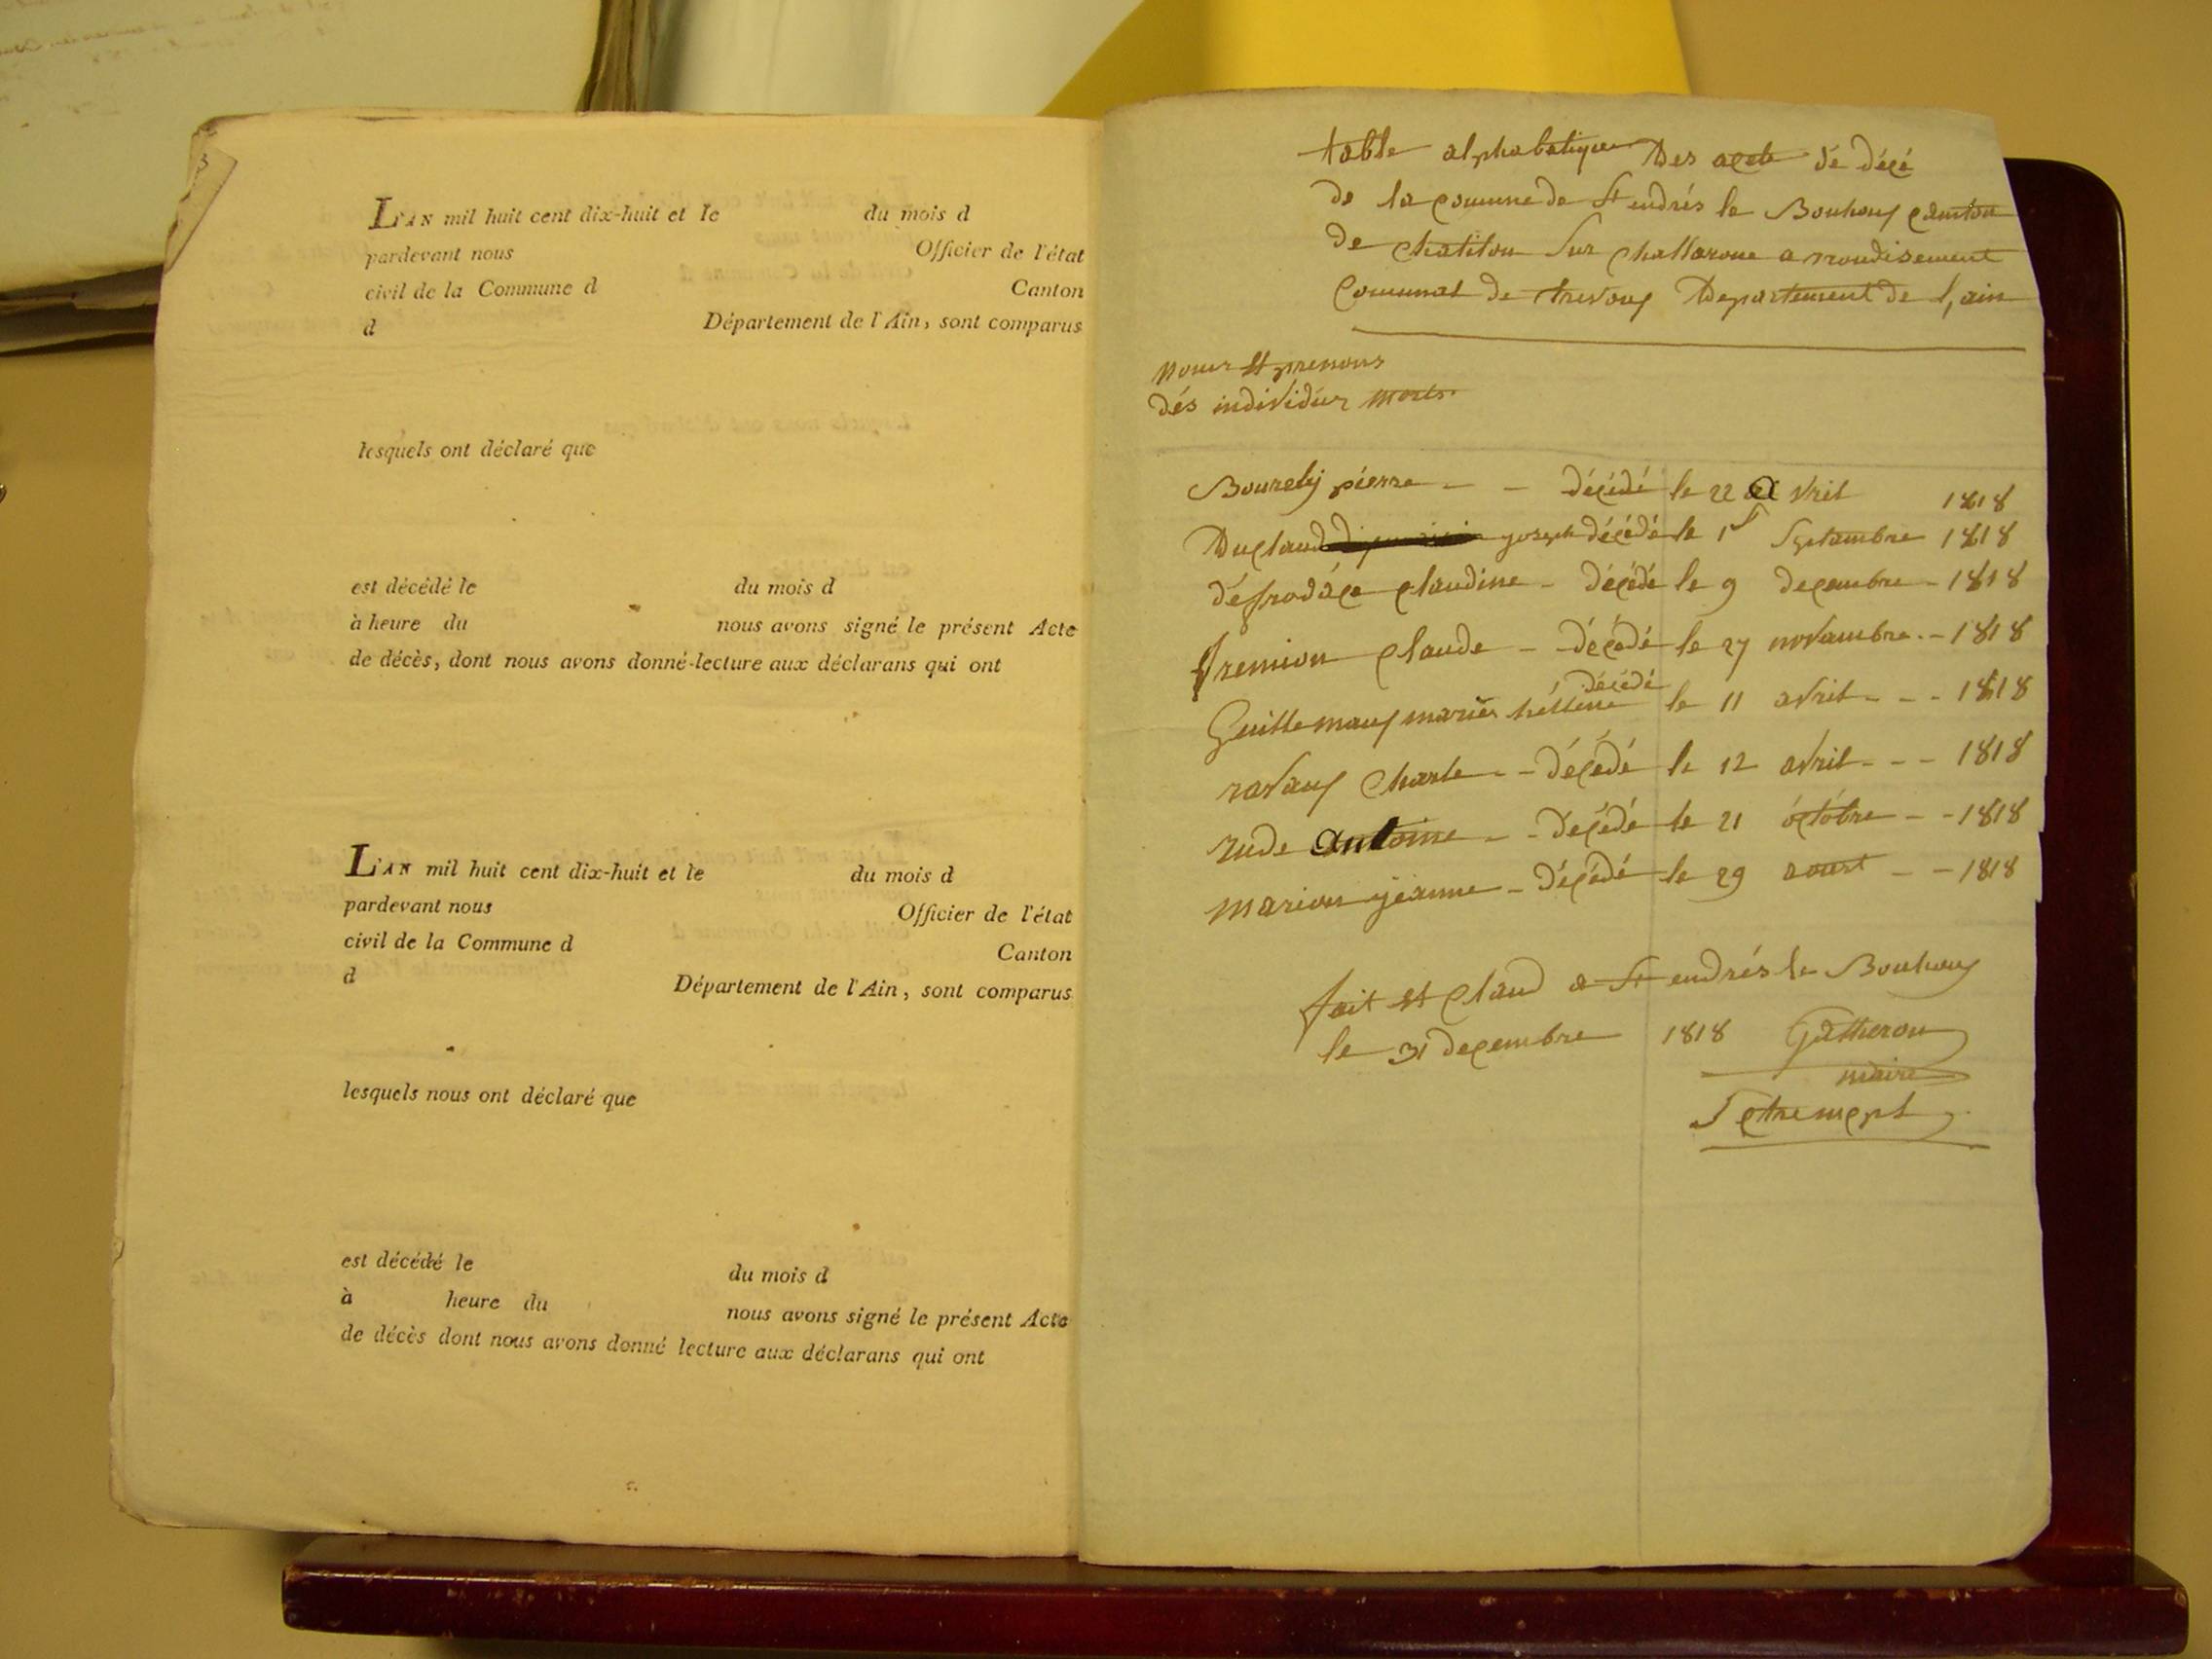 L'AN mil huit cent dix-huit et le du mois d
pardevant nous Officier de l'état
civil de la Commune d Canton
d Département de l'Ain, sont comparus
lesquels ont déclaré que
est décédé le du mois d
à heure du nous avons signé le présent Acte
de décès, dont nous avons donné lecture aux déclarans qui ont
L'AN mil huit cent dix-huit et le du mois d
pardevant nous Officier de l'état
civil de la Commune d Canton
d Département de l'Ain, sont comparus
lesquels nous ont déclaré que
est décédé le du mois d
à heure du nous avons signé le présent Acte
de décès dont nous avons donné lecture aux déclarans qui ont
table alphabetique Des acete de décé
de la comune de St endrés le Bouhoux canton
de chatillon sur challarone arrondisement
communal de trevoux Departement de l,ain
noms et prenoms
dés individus morts
Bourely piérre - - décédé le 22 avril 1818
Duclaud joseph décédé le 1 septambre 1818
claudine - décédé le 9 decembre - 1818
fremion claude - décédé le 27 novambre - 1818
décédé
Guillemaux mariés héllene le 11 avril - - - 1818
ravaux charle - - décédé le 12 avril - - - 1818
rude antoine - - décédé le 21 óctóbre - - 1818
marion jéanne - décédé le 29 aoust - - 1818
fait et claud a St endrés le Bouhoux
le 31 decembre 1818 Gatheron
maire